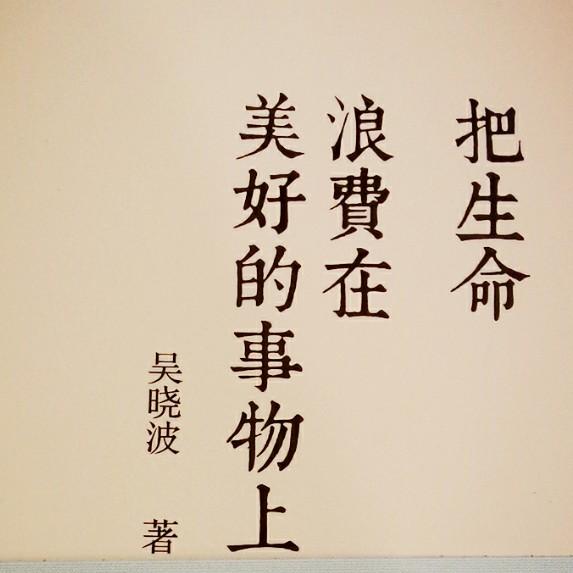 把生命
浪費在
美好的事物上
吴晓波 著